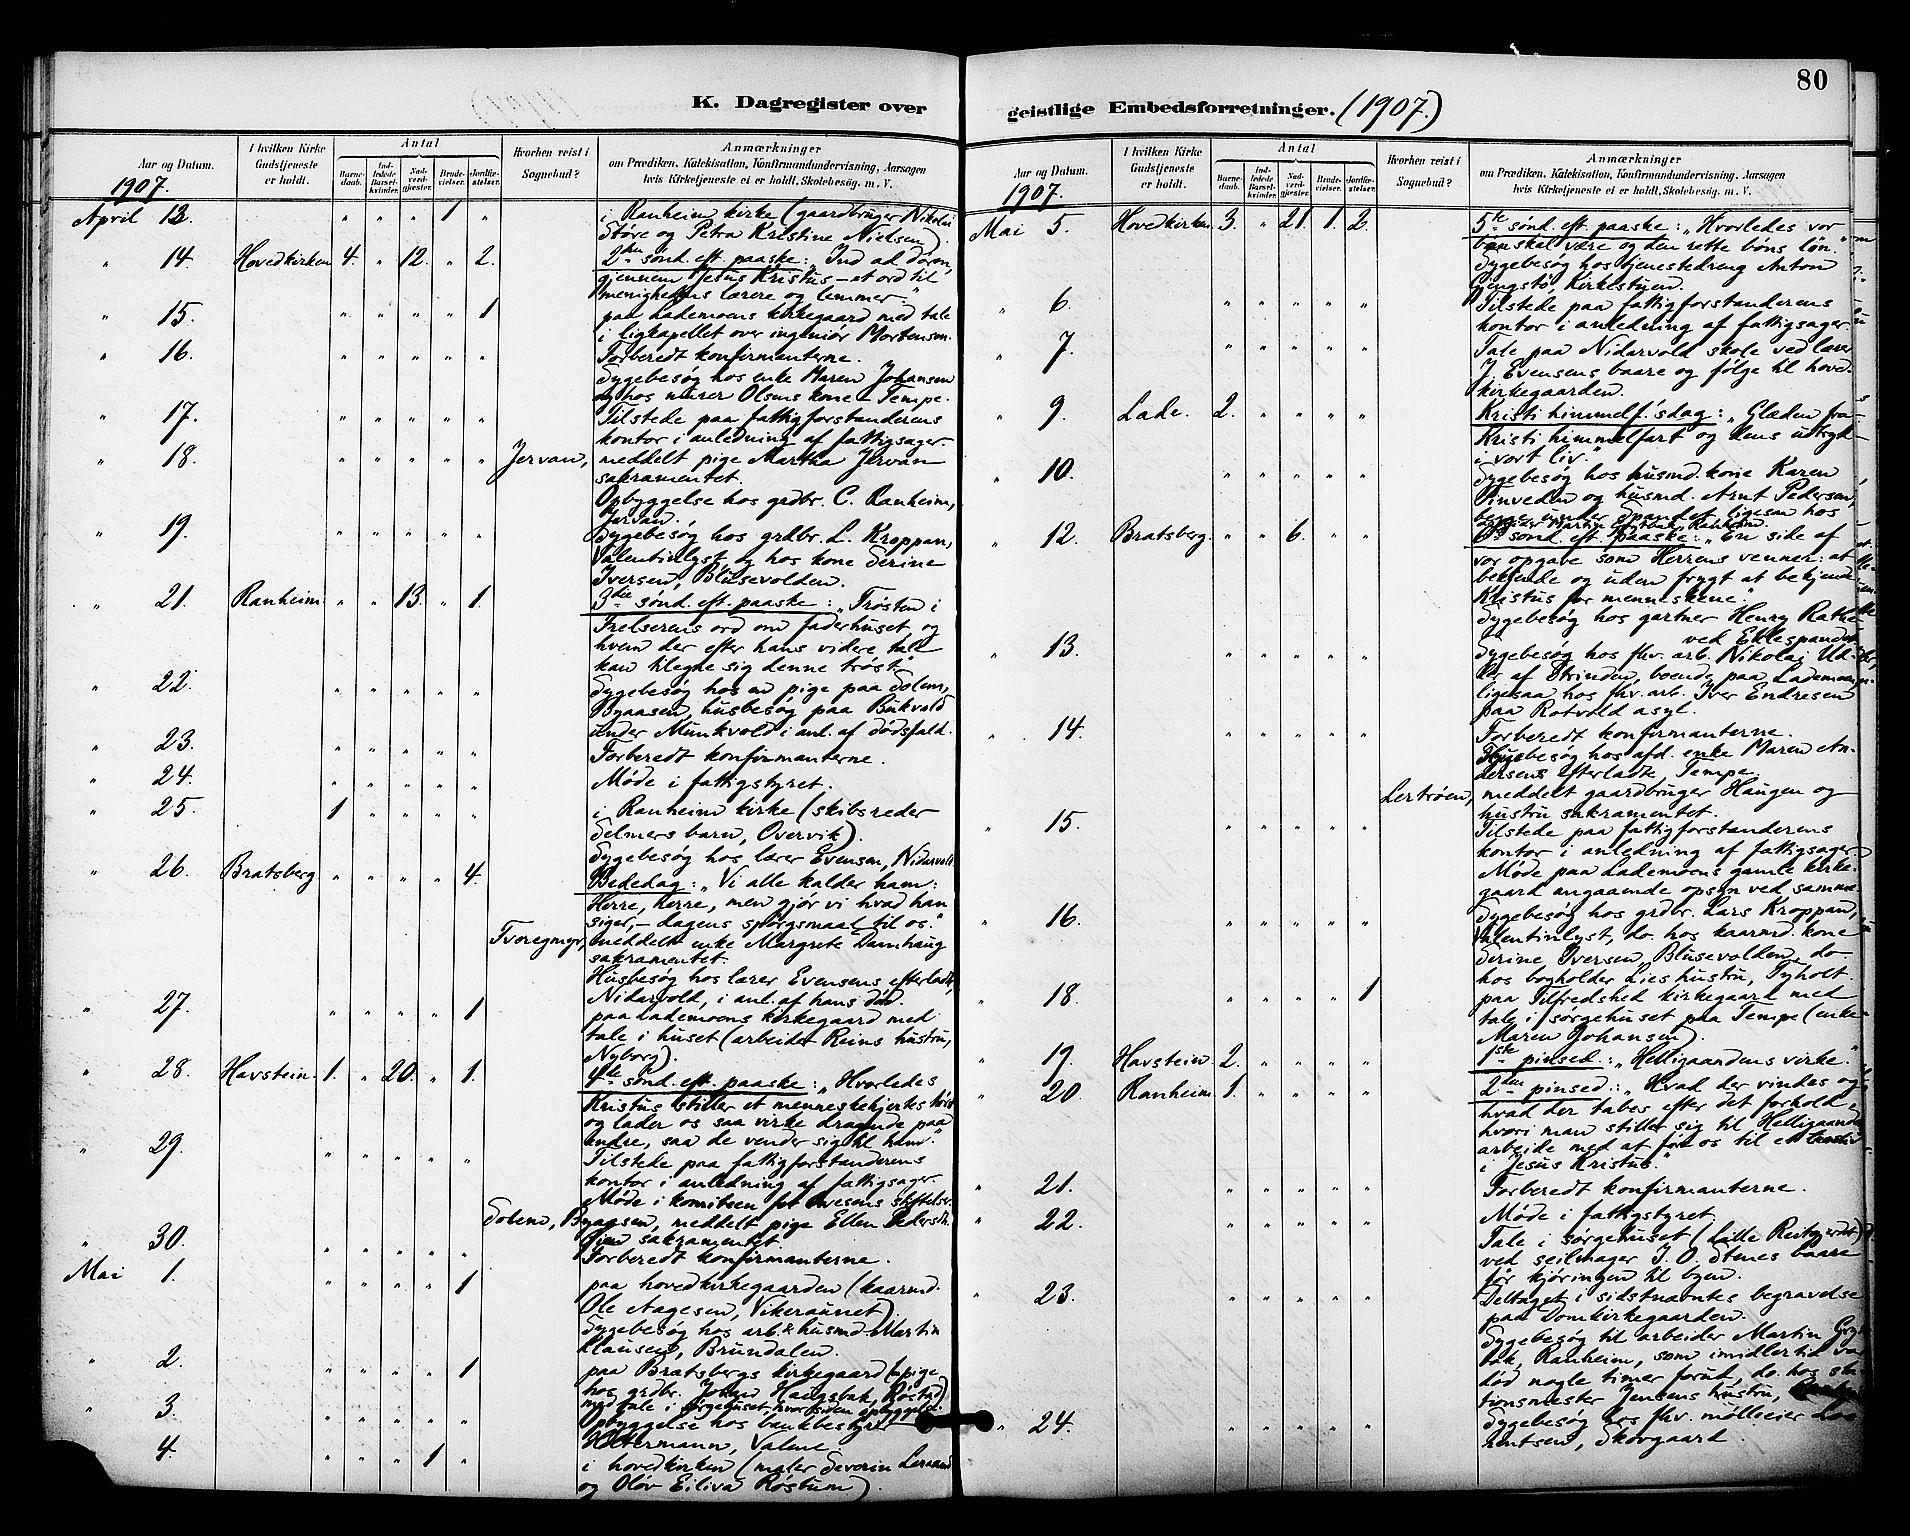 80
K. Dagregister over geistlige Embedsforretninger. (1907.)
Aar og Datum.
I hvilken Kirke Gudstjeneste er holdt.
Antal
Barnedaab.
Indledede Barselkvinder.
Nadverdgjester.
Brudevielser.
Jordfæstelser.
Hvorhen reist i Sognebud?
Anmærkninger
om Prædiken, Katekisation, Konfirmandundervisning, Aarsagen
hvis Kirketjeneste ei er holdt, Skolebesøg, m. V.
1907.
April 13. " " " 1 " i Ranheim kirke (gaardbruger Nikolai
Støre og Petra Kristine Nielsen).
" 14. Hovedkirken 4. " 12. " 2. 2den sønd. eft. paaske: "Ind ad døren,
gjennem Jesus Kristus – et ord til
menighedens lærere og lemmer."
" 15. " " " " 1 paa Lademoens kirkegaard med tale
i ligkapellet over ingeniør Mortensen.
" 16. " " " " " Forberedt konfirmanterne.
Sygebesøg hos enke Maren Johansen
og hos murer Olsens kone – Tempe.
" 17. " " " " " Tilstede paa fattigforstanderens
kontor i anledning af fattigsager.
" 18. " " " " " Jervan, meddelt pige Martha Jervan
sakramentet.
Opbyggelse hos grdbr. C. Ranheim,
Jervan.
" 19. " " " " " Sygebesøg hos grdbr. L. Kroppan,
Valentinlyst, og hos kone Serine
Iversen, Blusevolden.
" 21. Ranheim. " " 13. " 1. 3die sønd. eft. paaske: "Trøsten i
Frelserens ord om faderhuset og
hvem der efter hans videre tale
kan tilegne sig denne trøst."
" 22. " " " " " Sygebesøg hos en pige paa Solem,
Byaasen, husbesøg paa Bukvold
under Munkvold i anl. af dødsfald.
" 23. " " " " " Forberedt konfirmanterne.
" 24. " " " " " Møde i fattigstyret.
" 25. 1 " " " " i Ranheim kirke (skibsreder
Selmers barn, Overvik).
Sygebesøg hos lærer Evensen, Nidarvold
" 26. Bratsberg. " " " " 4. Bededag: "Vi alle kalder ham:
Herre, herre, men gjør vi hvad han
siger, – dagens spørgsmaal til os."
Tvoregmyr, meddelt enke Margrete Damhaug
sakramentet.
Husbesøg hos lærer Evensens efterladte,
Nidarvold, i anl. af hans død.
" 27. " " " " 1 paa Lademoens kirkegaard med
tale i huset (arbeider Reins hustru,
Nyborg).
" 28. Havstein. 1. " 20. " 1. 4de sønd. eft. paaske: "Hvorledes
Kristus stiller et menneskehjertes tørst
og lader os saa virke dragende paa
andre, saa de vender sig til ham."
" 29. " " " " " Tilstede paa fattigforstanderens
kontor i anledning af fattigsager.
Møde i komiteen for Owesens stiftelser.
Solem, Byaasen, meddelt pige Ellen Pedersdt.
sakramentet.
" 30. " " " " " Forberedt konfirmanterne.
Mai 1. " " " " 1 paa hovedkirkegaarden (kaarmd.
Ole Aagesen, Vikeraunet).
Sygebesøg hos arb. & husmd. Martin
Klausen, Brundalen.
" 2. " " " " 1 paa Bratsbergs kirkegaard (en pige
hos grdbr. Johan Haugsbak, Røstad)
med tale i sørgehuset, hvor siden opbyggelse.
" 3. " " " " " Opbyggelse hos bankbestyrer
Heltermann, Valene.
" 4. " " " 1 " i hovedkirken (maler Severin Lersand
og Olöv Eiliva Røstum).
1907.
Mai 5. Hovedkirken 3. " 21. 1. 2. 5te sønd. eft. paaske: "Hvorledes vor
bøn skal være og den rette bøns løn."
Sygebesøg hos tjenestedreng Anton
Gjengstø, Kirkestuen.
" 6. " " " " " Tilstede paa fattigforstanderens
kontor i anledning af fattigsager.
" 7. " " " " " Tale paa Nidarvold skole ved lærer
J. Evensens baare og følge til hoved-
kirkegaarden.
" 9. Lade. 2. " " " " Kristi himmelf.'s dag: "Glæden fra
Kristi himmelfart og dens udtryk
i vort liv."
" 10. " " " " " Sygebesøg hos husmd. kone Karen
Vinveden og husmd. Arnt Pedersen,
berge under Spandet, ligesom hos
arbeider Martin Grytbak, Ranheim.
" 12. Bratsberg. " " 6. " " 6te sønd. eft. paaske: "En side af
vor opgave som Herrens venner: at
bekjende og uden frygt at bekjende
Kristus for menneskene."
Sygebesøg hos gartner Henry Rathe
ved Eklespandet.
" 13. " " " " " Sygebesøg hos fhv. arb. Nikolai
af Strinden, boende paa Lademoen,
ligesaa hos fhv. arb. Iver Endresen
paa Rotvold asyl.
" 14. " " " " " Forberedt konfirmanterne.
Husbesøg hos afd. enke Maren An-
dersens efterladte, Tempe.
Lertrøen, meddelt gaardbruger Haugen og
hustru sakramentet.
" 15. " " " " " Tilstede paa fattigforstanderens
kontor i anledning af fattigsager
Møde paa Lademoens gamle kirke-
gaard angaaende opsyn ved samme
" 16. " " " " " Sygebesøg hos grdbr. Lars Kroppan,
Valentinlyst, do. hos kaarmd. kone
Serine Iversen, Blusevolden, do.
hos bogholder Lies hustru, Tyholt.
" 18. " " " " 1 paa Tilfredshed kirkegaard med
tale i sørgehuset paa Tempe (enke
Maren Johansen).
" 19. Havstein. 2. " " " " 1ste pinsed.: "Helligaandens virke."
" 20. Ranheim. 1. " " " " 2den pinsed.: "Hvad der vindes og
hvad der tabes efter det forhold,
hvori man stiller sig til Helligaandens
arbeide med at føre os til et
i Jesus Kristus."
" 21. " " " " " Forberedt konfirmanterne.
" 22. " " " " " Møde i fattigstyret
Tale i sørgehuset (Lille Reitgjerdet)
ved seilmager J. O. Stenes baare
før kjøringen til byen.
" 23. " " " " " Deltaget i sidstnævntes begravelse
paa Domkirkegaarden.
Sygebesøg til arbeider Martin Gryt-
bak, Ranheim, som imidlertid var
død nogle timer forut, do. hos sta-
tionsmester Jensens hustru,
" 24. " " " " " Sygebesøg hos fhv. mølleier
rentsen, Skovgaard.